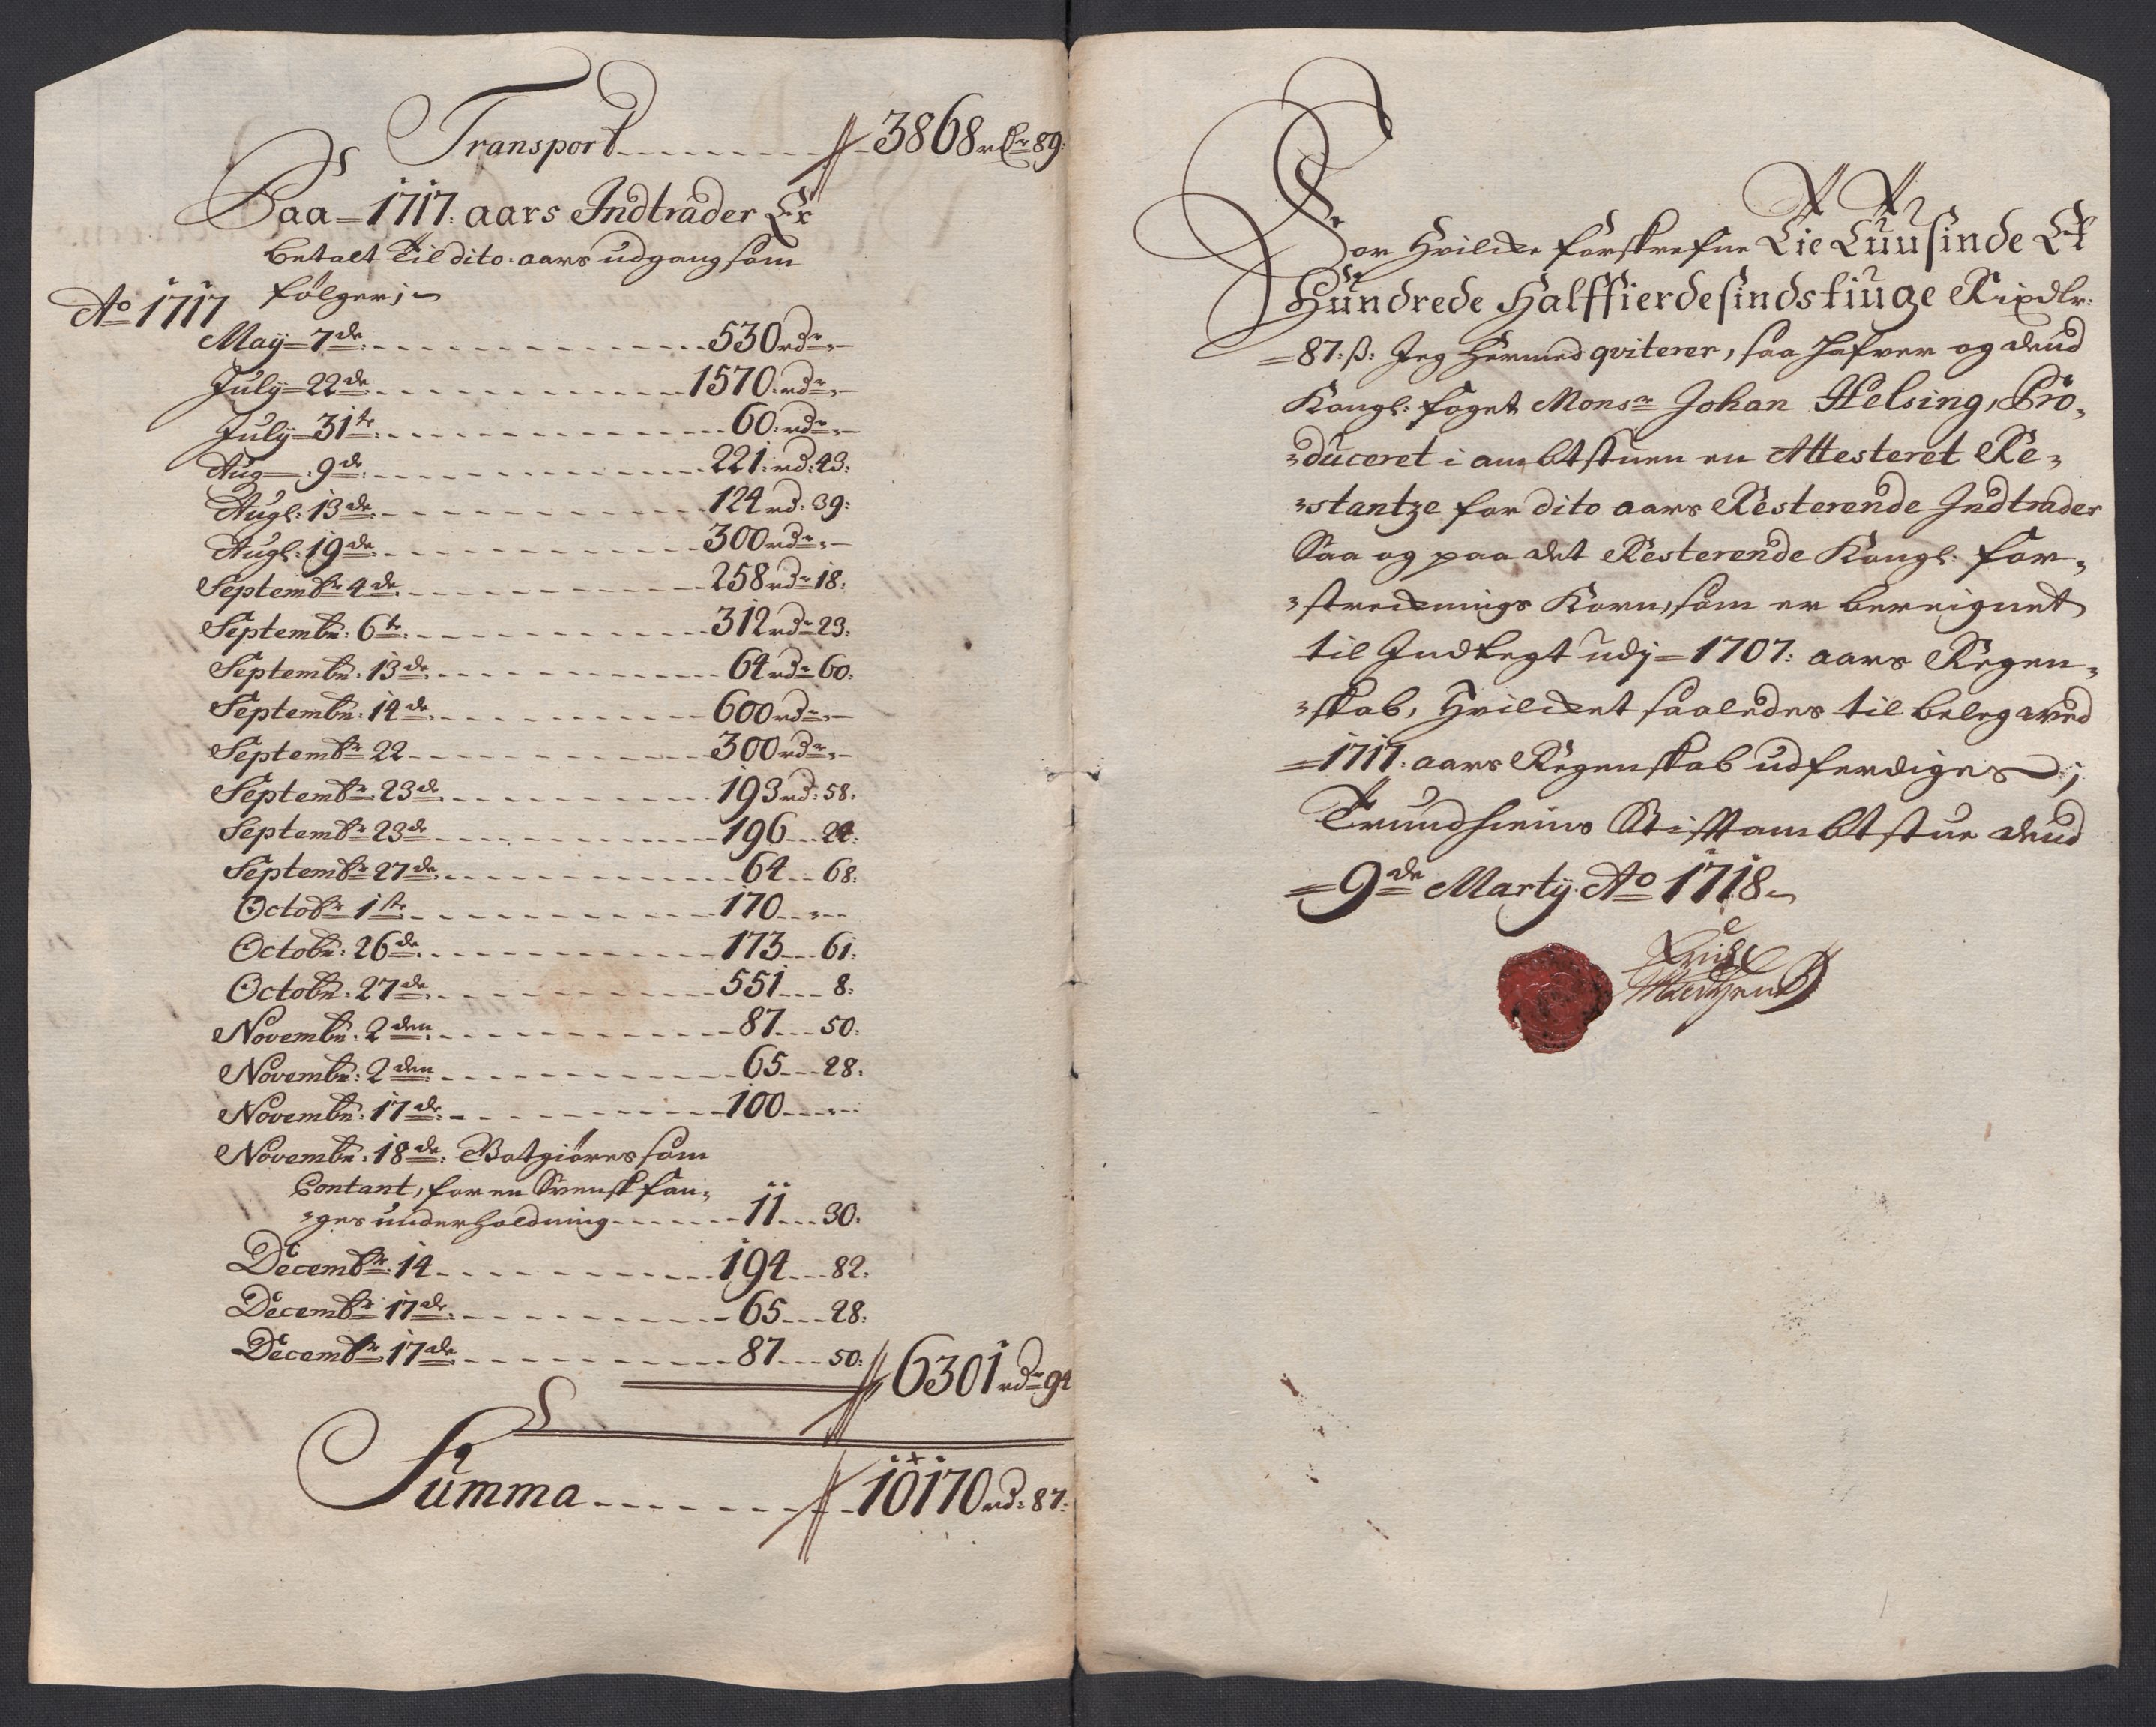 Transport 3868 rdr 89:
Paa 1717: aars Indtrader Er
betalt til dito aars udgang som
følger;
Ao 1717
May 7de: 530 rdr:
July 22de 1570: rdr:
July 31te: 60: rdr:
Aug: 9de: 221: rd: 43:
Augl: 13de: 124 rd: 39:
Augl: 19de 300 rdr:
Septembr 4de 258 rdr 18:
Septembr: 6te: 312 rdr 23:
Septembr: 13de 64 rdr 60:
Septembr: 14de 600 rdr:
Septembr 22 300 rdr:
Septembr 23de 193 rd: 58:
Septembr 23de 196 24:
Septembr 27de 64 68:
Octobr 1ste 170
Octobr: 26de 173 61:
Octobr: 27de 551 8:
Novembr: 2den 87 50:
Novembr: 2den 65 28:
Novembr: 17de: 100
Novembr: 18de: Botgiøres som
Contant, for en Svensk fan-
-ges underholdning 11 30:
Decembr: 14 194 82:
Decembr 17de 65 28:
Decembr: 17de 87 50:
6301 rdr 94
Summa 10170 rd: 87:
For Hvilcke forskrefne Tie Tuusinde Et
Hundrede Halffierdesindstiuge Rixdlr:
87: ß: Jeg Hermed qviterer, saa hafver og dend
Kongl: foget Monsr Johan Helsing, Pro-
-duceret i ambtstuen en Attesteret Re-
-stantze for dito aars Resterende Indtrader
Saa og paa det Resterende Kongl: for-
-streknings Korn, som er bereignet
til Indtegt udj 1707: aars Regen-
-skab, Hvilcket saaledes til beleg ved
1717: aars Regenskab udferdiges;
Trundhiems Stiftambtstue dend
9de Marty Ao 1718